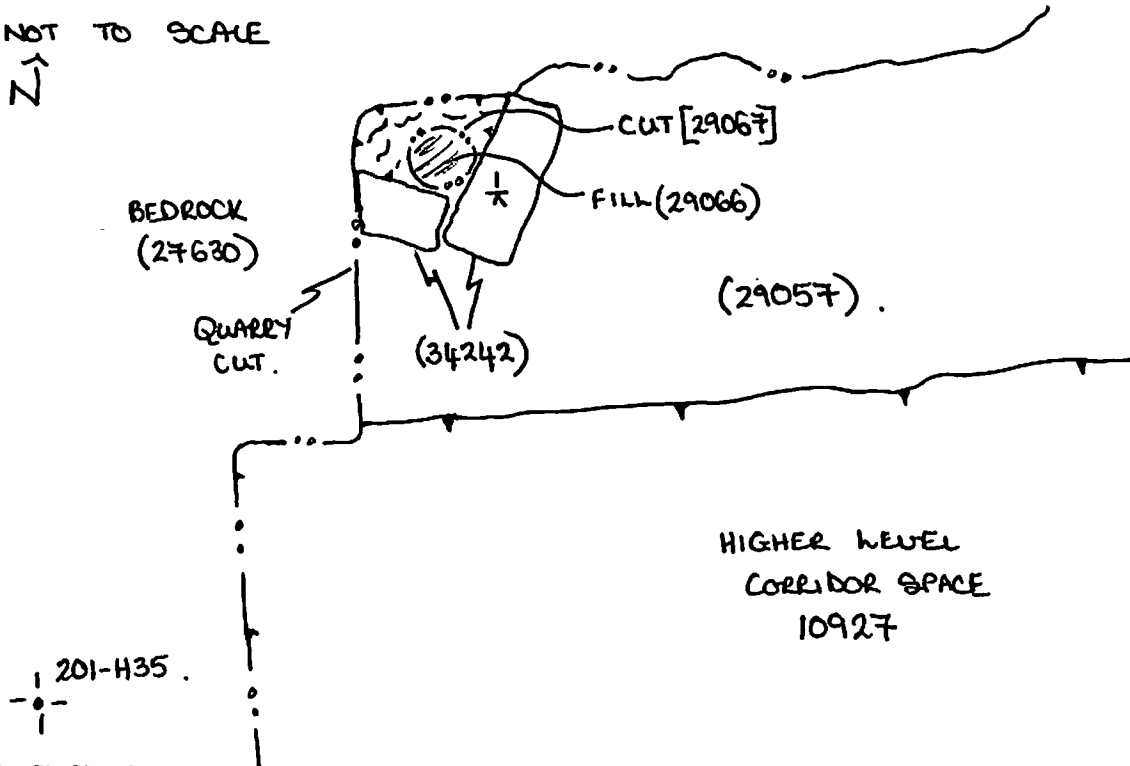 NOT TO SCALE
N
CUT [29067]
FILL (29066)
BEDROCK
(27630)
(29057).
QUARRY
CUT.
(34242)
HIGHER LEVEL
CORRIDOR SPACE
10927
201-H35.